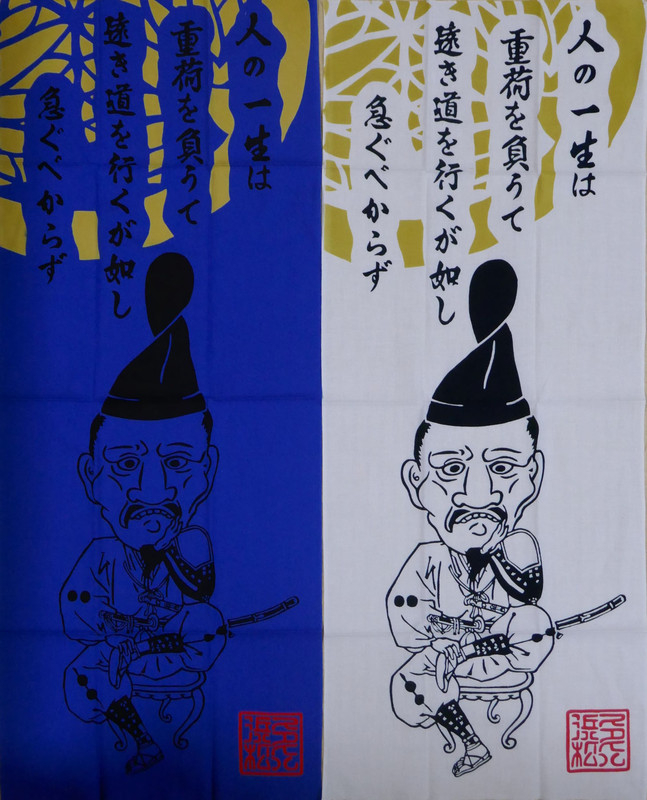 人の一生は
重荷を負うて
遠き道を行くが如し
急ぐべからず
浜松
人の一生は
重荷を負うて
遠き道を行くが如し
急ぐべからず
浜松